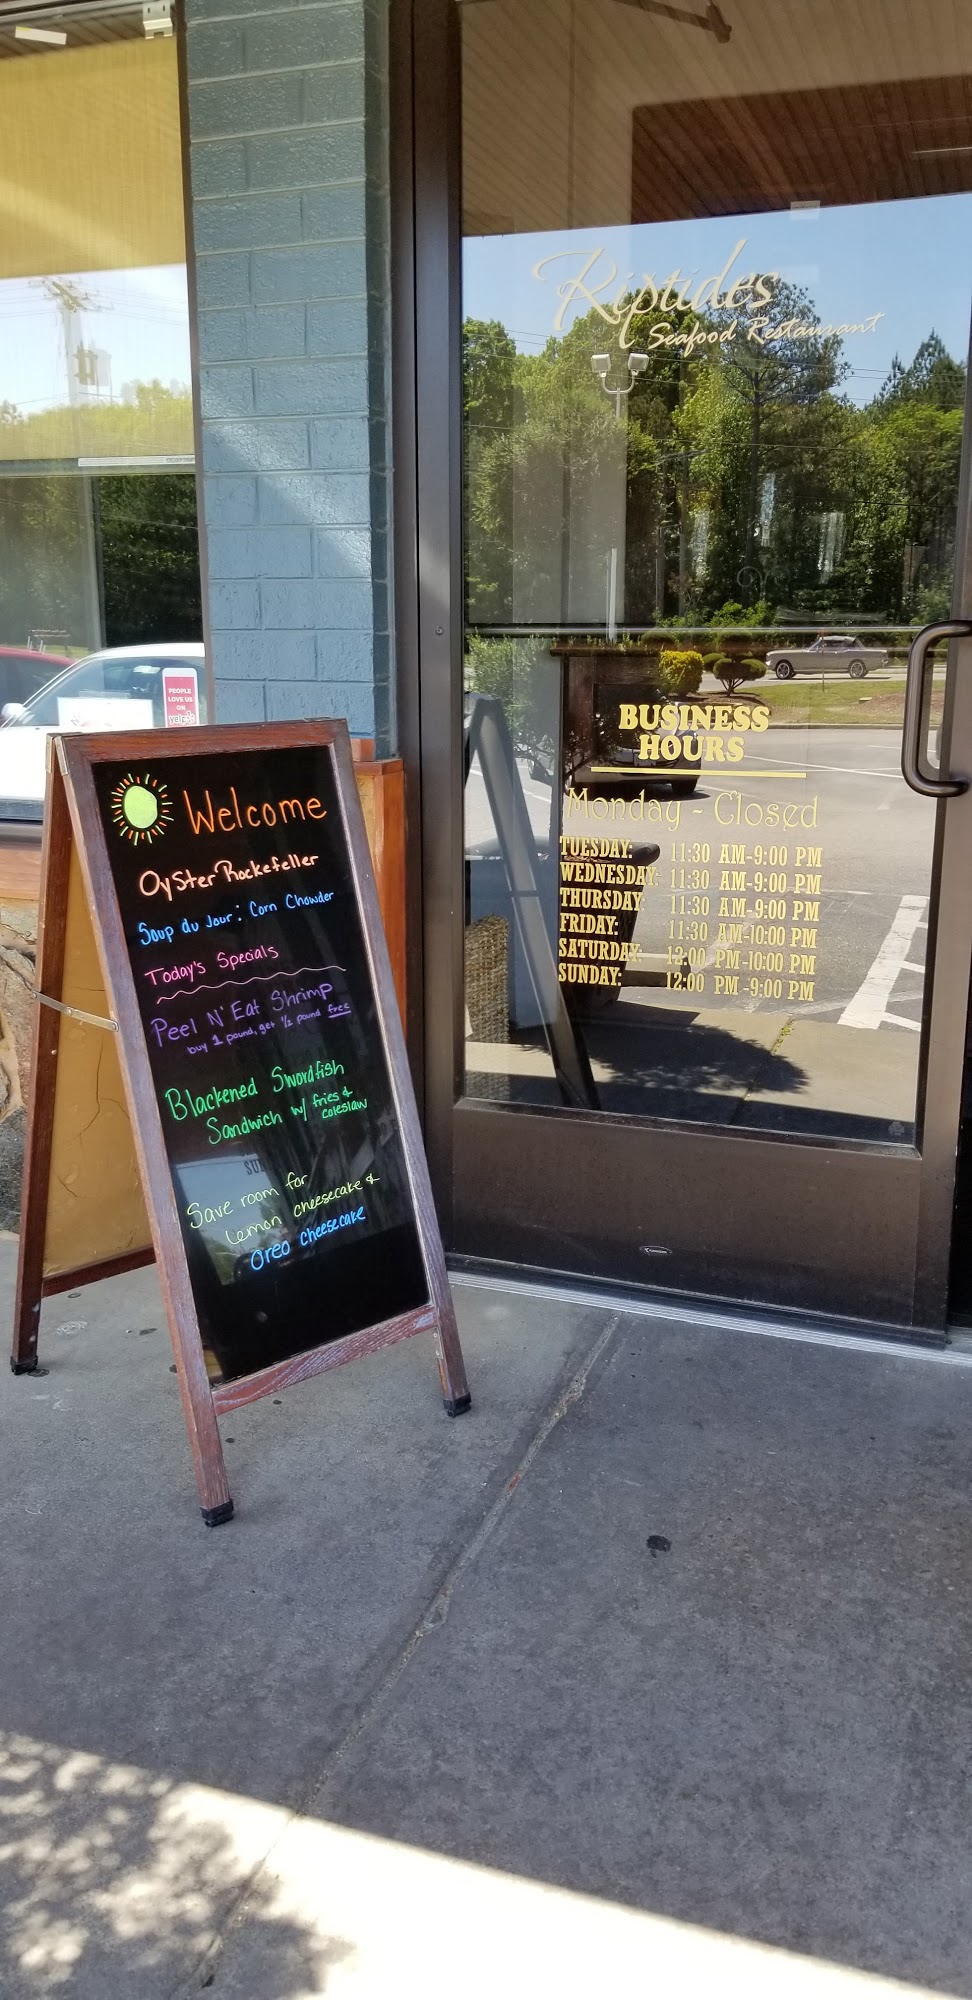 Riptides
Seafood Restaurant
BUSINESS
HOURS
Monday - Closed
TUESDAY: 11:30 AM-9:00 PM
WEDNESDAY: 11:30 AM-9:00 PM
THURSDAY: 11:30 AM-9:00 PM
FRIDAY: 11:30 AM-10:00 PM
SATURDAY: 12:00 PM-10:00 PM
SUNDAY: 12:00 PM-9:00 PM
PEOPLE
LOVE US
ON
yelp
Welcome
Oyster Rockefeller
Soup du Jour: Corn Chowder
Today's Specials
Peel N' Eat Shrimp
buy 1 pound, get 1/2 pound free
Blackened Swordfish
Sandwich w/ fries &
coleslaw
Save room for
Lemon cheesecake &
Oreo cheesecake